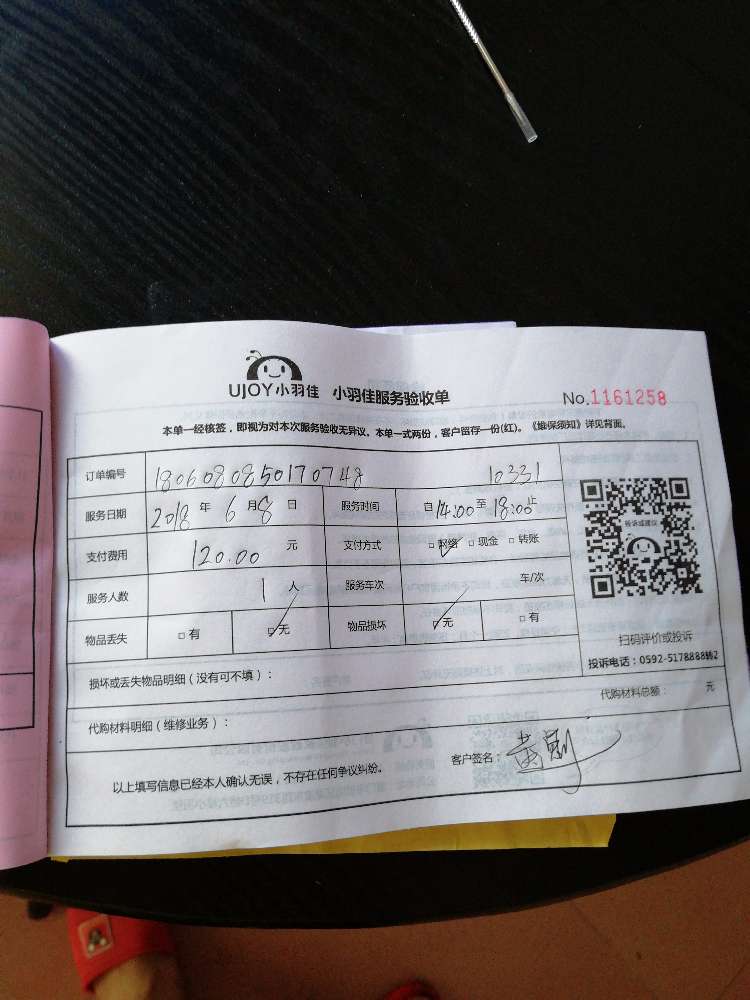 UJOY小羽佳 小羽佳服务验收单 No.1161258
本单一经核签，即视为对本次服务验收无异议、本单一式两份，客户留存一份(红)。《维保须知》详见背面。
订单编号 1806080850170748 10331
服务日期 2018 年 6 月 8 日 服务时间 自 14:00 至 18:00 止
支付费用 120.00 元 支付方式 □网络 □现金 □转账
服务人数 1 人 服务车次 车/次
物品丢失 □有 □无 物品损坏 □无 □有
投诉或建议
扫码评价或投诉
投诉电话：0592-5178888转2
损坏或丢失物品明细（没有可不填）：
代购材料总额： 元
代购材料明细（维修业务）：
以上填写信息已经本人确认无误，不存在任何争议纠纷。 客户签名：黄